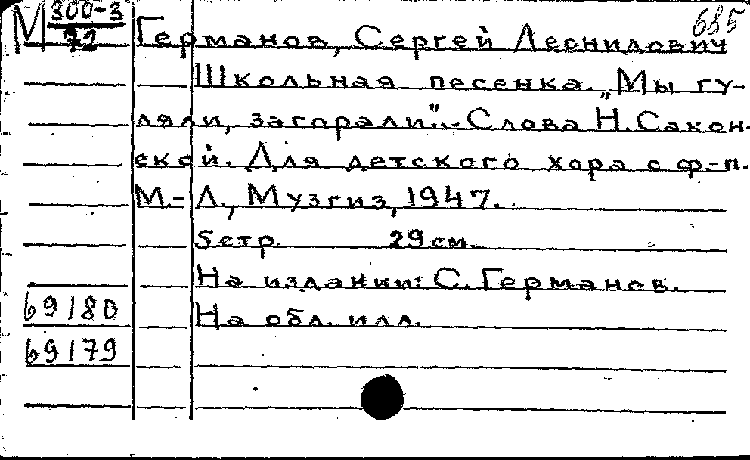 М 300-3
72
685
Германов, Сергей Леонидович
Школьная песенка „Мы гу-
ляли, загорали". Слова Н. Сакон-
ской. Для детского хора с ф-п.
М.-Л., Музгиз, 1947.
5 стр. 29 см.
На издании: С. Германов.
69180
На обл. илл.
69179